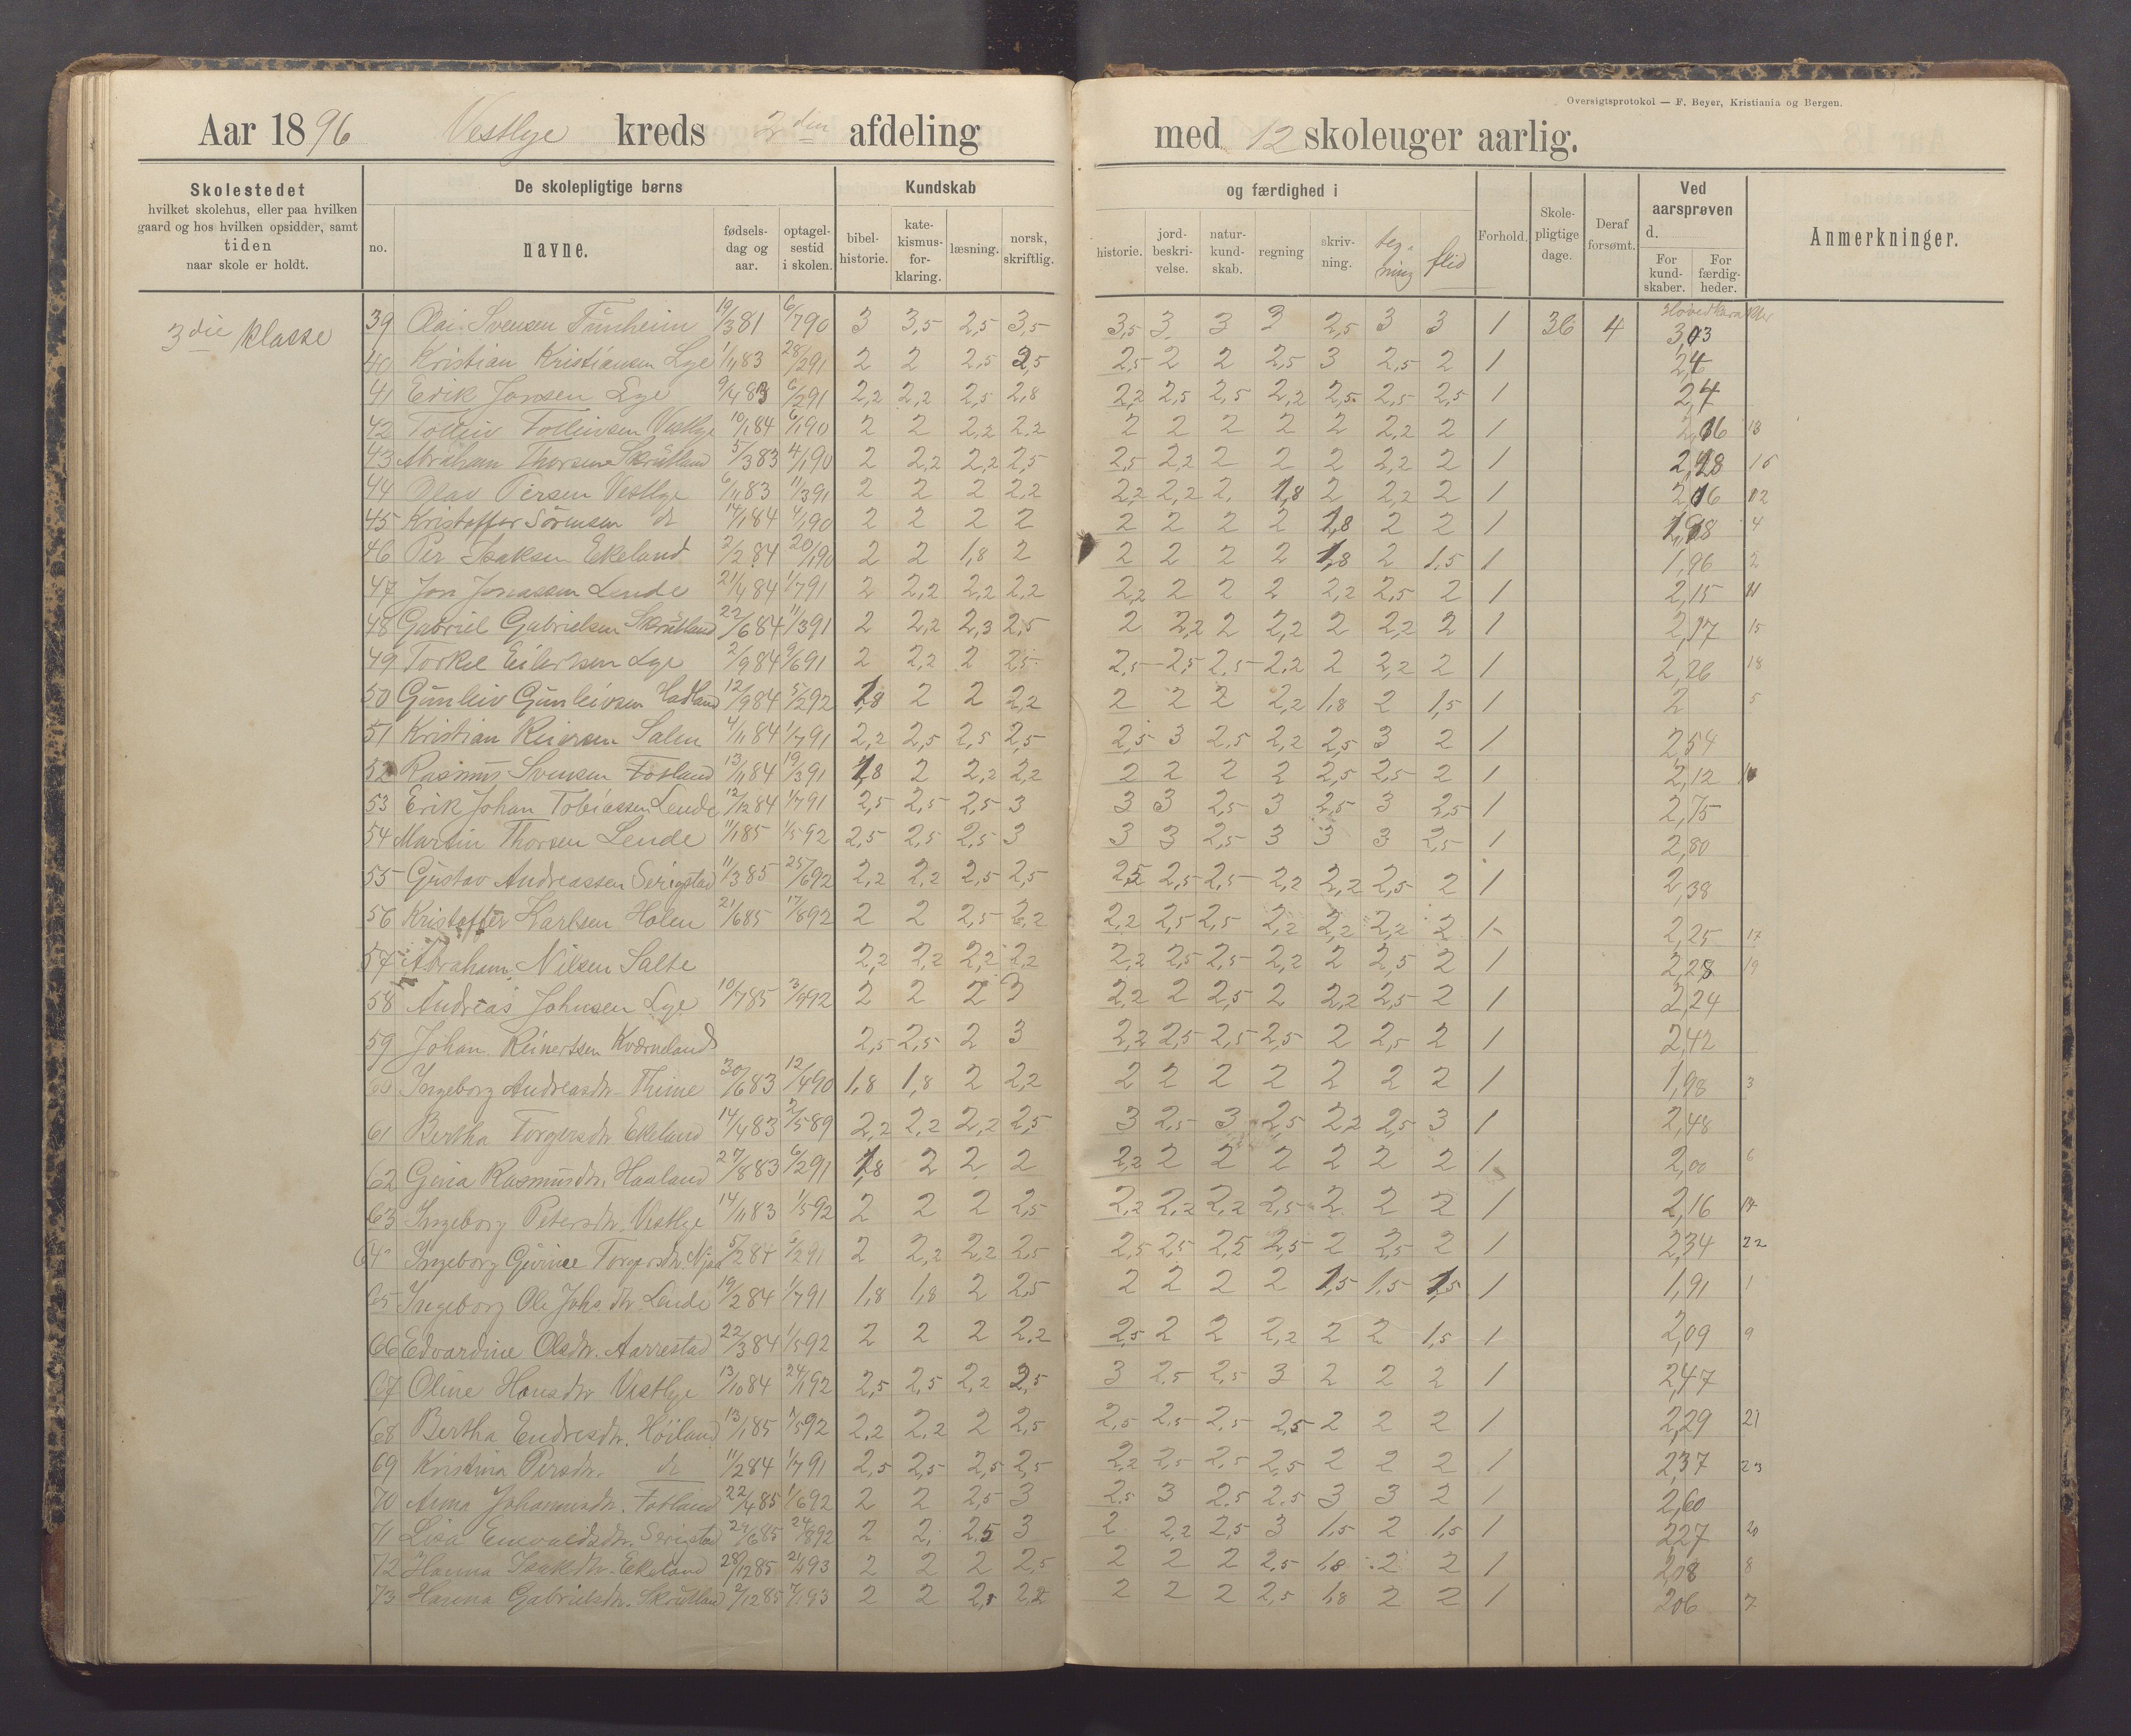 Oversigtsprotokol — F. Beyer, Kristiania og Bergen.
Aar 1896 Vestlye kreds 2den afdeling med 12 skoleuger aarlig.
Skolestedet hvilket skolehus, eller paa hvilken gaard og hos hvilken opsidder, samt tiden naar skole er holdt.
De skolepligtige børns
no. navne. fødsels-dag og aar. optagel-sestid i skolen.
Kundskab og færdighed i
bibel-historie. kate-kismus-for-klaring. læsning. norsk, skriftlig. historie. jord-beskri-velse. natur-kund-skab. regning skriv-ning. teg-ning flid
Forhold. Skole-pligtige dage. Deraf forsømt.
Ved aarsprøven d. For kund-skaber. For færdig-heder.
Anmerkninger.
3die klasse
Hovedkarakter
39 Olai Svensen Tunheim 19/3 81 6/7 90 3 3,5 2,5 3,5 3,5 3 3 3 2,5 3 3 1 36 4 3,03
40 Kristian Kristiansen Lye 1/11 83 28/2 91 2 2 2,5 2,5 2,5 2 2 2,5 3 2,5 2 1
41 Erik Jonsen Lye 9/4 83 6/2 91 2,2 2,2 2,5 2,8 2,2 2,5 2,5 2,2 2,5 2,5 2,5 1 2,4
42 Tolleiv Tolleivsen Vestlye 10/1 84 6/1 90 2 2 2,2 2,2 2 2 2 2 2 2,2 2 1 2,16 13
43 Abraham Thorsen Skrutland 5/3 83 4/1 90 2 2,2 2,2 2,5 2,5 2,2 2 2 2 2,2 2 1 2,18 16
44 Olav Persen Vestlye 6/11 83 11/3 91 2 2 2 2,2 2,2 2,2 2 1,8 2 2,2 2 1 2,16 12
45 Kristoffer Sörensen do 14/1 84 4/1 90 2 2 2 2 2 2 2 2 1,8 2 2 1 1,98 4
46 Per Isaksen Ekeland 2/2 84 20/1 90 2 2 1,8 2 2 2 2 2 1,8 2 1,5 1 1,96 2
47 Jon Jonassen Lende 21/4 84 1/7 91 2 2,2 2,2 2,2 2,2 2 2 2 2,2 2,5 2 1 2,15 11
48 Gabriel Gabrielsen Skrutland 22/6 84 11/3 91 2 2,2 2,3 2,5 2 2,2 2 2,2 2 2,2 2 1 2,17 15
49 Torkel Eilertsen Lye 2/9 84 9/6 91 2 2,2 2 2,5 2,5 2,5 2,5 2,2 2 2,2 2 1 2,26 18
50 Gunleiv Gunleivsen Hadland 12/9 84 5/2 92 1,8 2 2 2,2 2 2 2 2,2 1,8 2 1,5 1 2 5
51 Kristian Reiersen Salen 4/11 84 1/7 91 2,2 2,5 2,5 2,5 2,5 3 2,5 2,2 2,5 3 2 1 2,54
52 Rasmus Svensen Fosland 13/11 84 19/3 91 1,8 2 2,2 2,2 2 2 2 2 2,5 2,5 2 1 2,12
53 Erik Johan Tobiassen Lende 12/12 84 1/7 91 2,5 2,5 2,5 3 3 3 2,5 3 2,5 3 2,5 1 2,75
54 Martin Thorsen Lende 11/1 85 1/5 92 2,5 2,5 2,5 3 3 3 2,5 3 3 3 2,5 1 2,80
55 Gustav Andreassen Serigstad 11/3 85 25/6 92 2,2 2,2 2,5 2,5 2,5 2,5 2,5 2,2 2,2 2,5 2 1 2,38
56 Kristoffer Karlsen Holen 21/6 85 17/8 92 2 2 2,5 2,2 2,2 2,5 2,5 2,2 2,2 2,2 2 1 2,25 17
57 Abraham Nilsen Salte 2,2 2,2 2,2 2,2 2,2 2,5 2,5 2,2 2 2,5 2 1 2,28 19
58 Andreas Johnsen Lye 10/7 85 3/9 92 2 2 2 3 2,2 2 2,5 2 2,2 2,5 2 1 2,24
59 Johan Reinertsen Kværneland 2,5 2,5 2 3 2,2 2,5 2,5 2,5 2 2,5 2 1 2,42
60 Ingeborg Andreasdtr. Thime 30/6 83 12/4 90 1,8 1,8 2 2,2 2 2 2 2 2 2 2 1 1,98 3
61 Bertha Torgersdtr Ekeland 14/4 83 2/5 89 2,2 2,2 2,2 2,5 3 2,5 3 2,5 2,2 2,5 3 1 2,48
62 Gina Rasmusdtr. Haaland 27/8 83 6/2 91 1,8 2 2 2 2,2 2 2 2 2 2 2 1 2,00 6
63 Ingeborg Petersdtr. Vestlye 14/11 83 1/5 92 2 2 2 2,5 2,2 2,2 2,2 2,5 2 2 2 1 2,16 14
64 Ingeborg Gurine Torgersdtr. Njaa 5/2 84 5/2 91 2 2,2 2,2 2,5 2,5 2,5 2,5 2,5 2 2,5 2 1 2,34 22
65 Ingeborg Ole Johs.dtr Lende 19/2 84 1/7 91 1,8 1,8 2 2,5 2 2 2 2 1,5 1,5 1,5 1 1,91 1
66 Edvardine Olsdtr. Aarrestad 22/3 84 1/5 92 2 2 2 2,2 2,5 2 2 2,2 2 2 1,5 1 2,09 9
67 Oline Hansdtr Vestlye 13/10 84 24/1 92 2,5 2,5 2,2 2,5 3 2,5 2,5 3 2 2 2 1 2,47
68 Bertha Endresdtr. Höiland 13/1 85 7/5 92 2,2 2,2 2 2,5 2,5 2,5 2,5 2,5 2 2 2 1 2,29 21
69 Kristina Persdtr. do 11/2 84 1/7 91 2,5 2,5 2,5 2,5 2,2 2,5 2,5 2,5 2 2 2 1 2,37 23
70 Anna Johannisdtr. Fosland 22/4 85 1/6 92 2 2 2,5 3 2,5 3 2,5 2,5 3 3 2 1 2,60
71 Lisa Enevaldsdtr. Serigstad 24/6 85 24/8 92 2 2 2,5 3 2 2,2 2,5 3 1,5 2 1,5 1 2,27 20
72 Hanna Isaksdtr. Ekeland 28/12 85 21/1 93 2 2 2 2,5 2 2 2 2,5 1,8 2 2 1 2,08 8
73 Hanna Gabrielsdtr. Skrutland 2/12 85 7/1 93 2 2 2,5 2,2 2 2 2 2,5 1,8 2 2 1 2,06 7